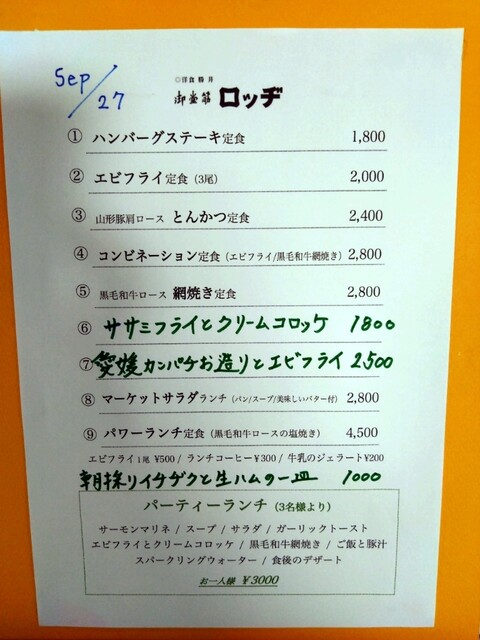 Sep/27
◎洋食 勝井
御堂筋 ロッヂ
① ハンバーグステーキ定食 1,800
② エビフライ定食（3尾） 2,000
③ 山形豚肩ロース とんかつ定食 2,400
④ コンビネーション定食（エビフライ/黒毛和牛網焼き） 2,800
⑤ 黒毛和牛ロース 網焼き定食 2,800
⑥ ササミフライとクリームコロッケ 1800
⑦ 愛媛カンパチお造りとエビフライ 2,500
⑧ マーケットサラダランチ（パン/スープ/美味しいバター付） 2,800
⑨ パワーランチ定食（黒毛和牛ロースの塩焼き） 4,500
エビフライ1尾 ¥500 / ランチコーヒー¥300 / 牛乳のジェラート¥200
朝採りイチヂクと生ハムの一皿 1000
パーティーランチ（3名様より）
サーモンマリネ / スープ / サラダ / ガーリックトースト
エビフライとクリームコロッケ / 黒毛和牛網焼き / ご飯と豚汁
スパークリングウォーター / 食後のデザート
お一人様 ¥3000